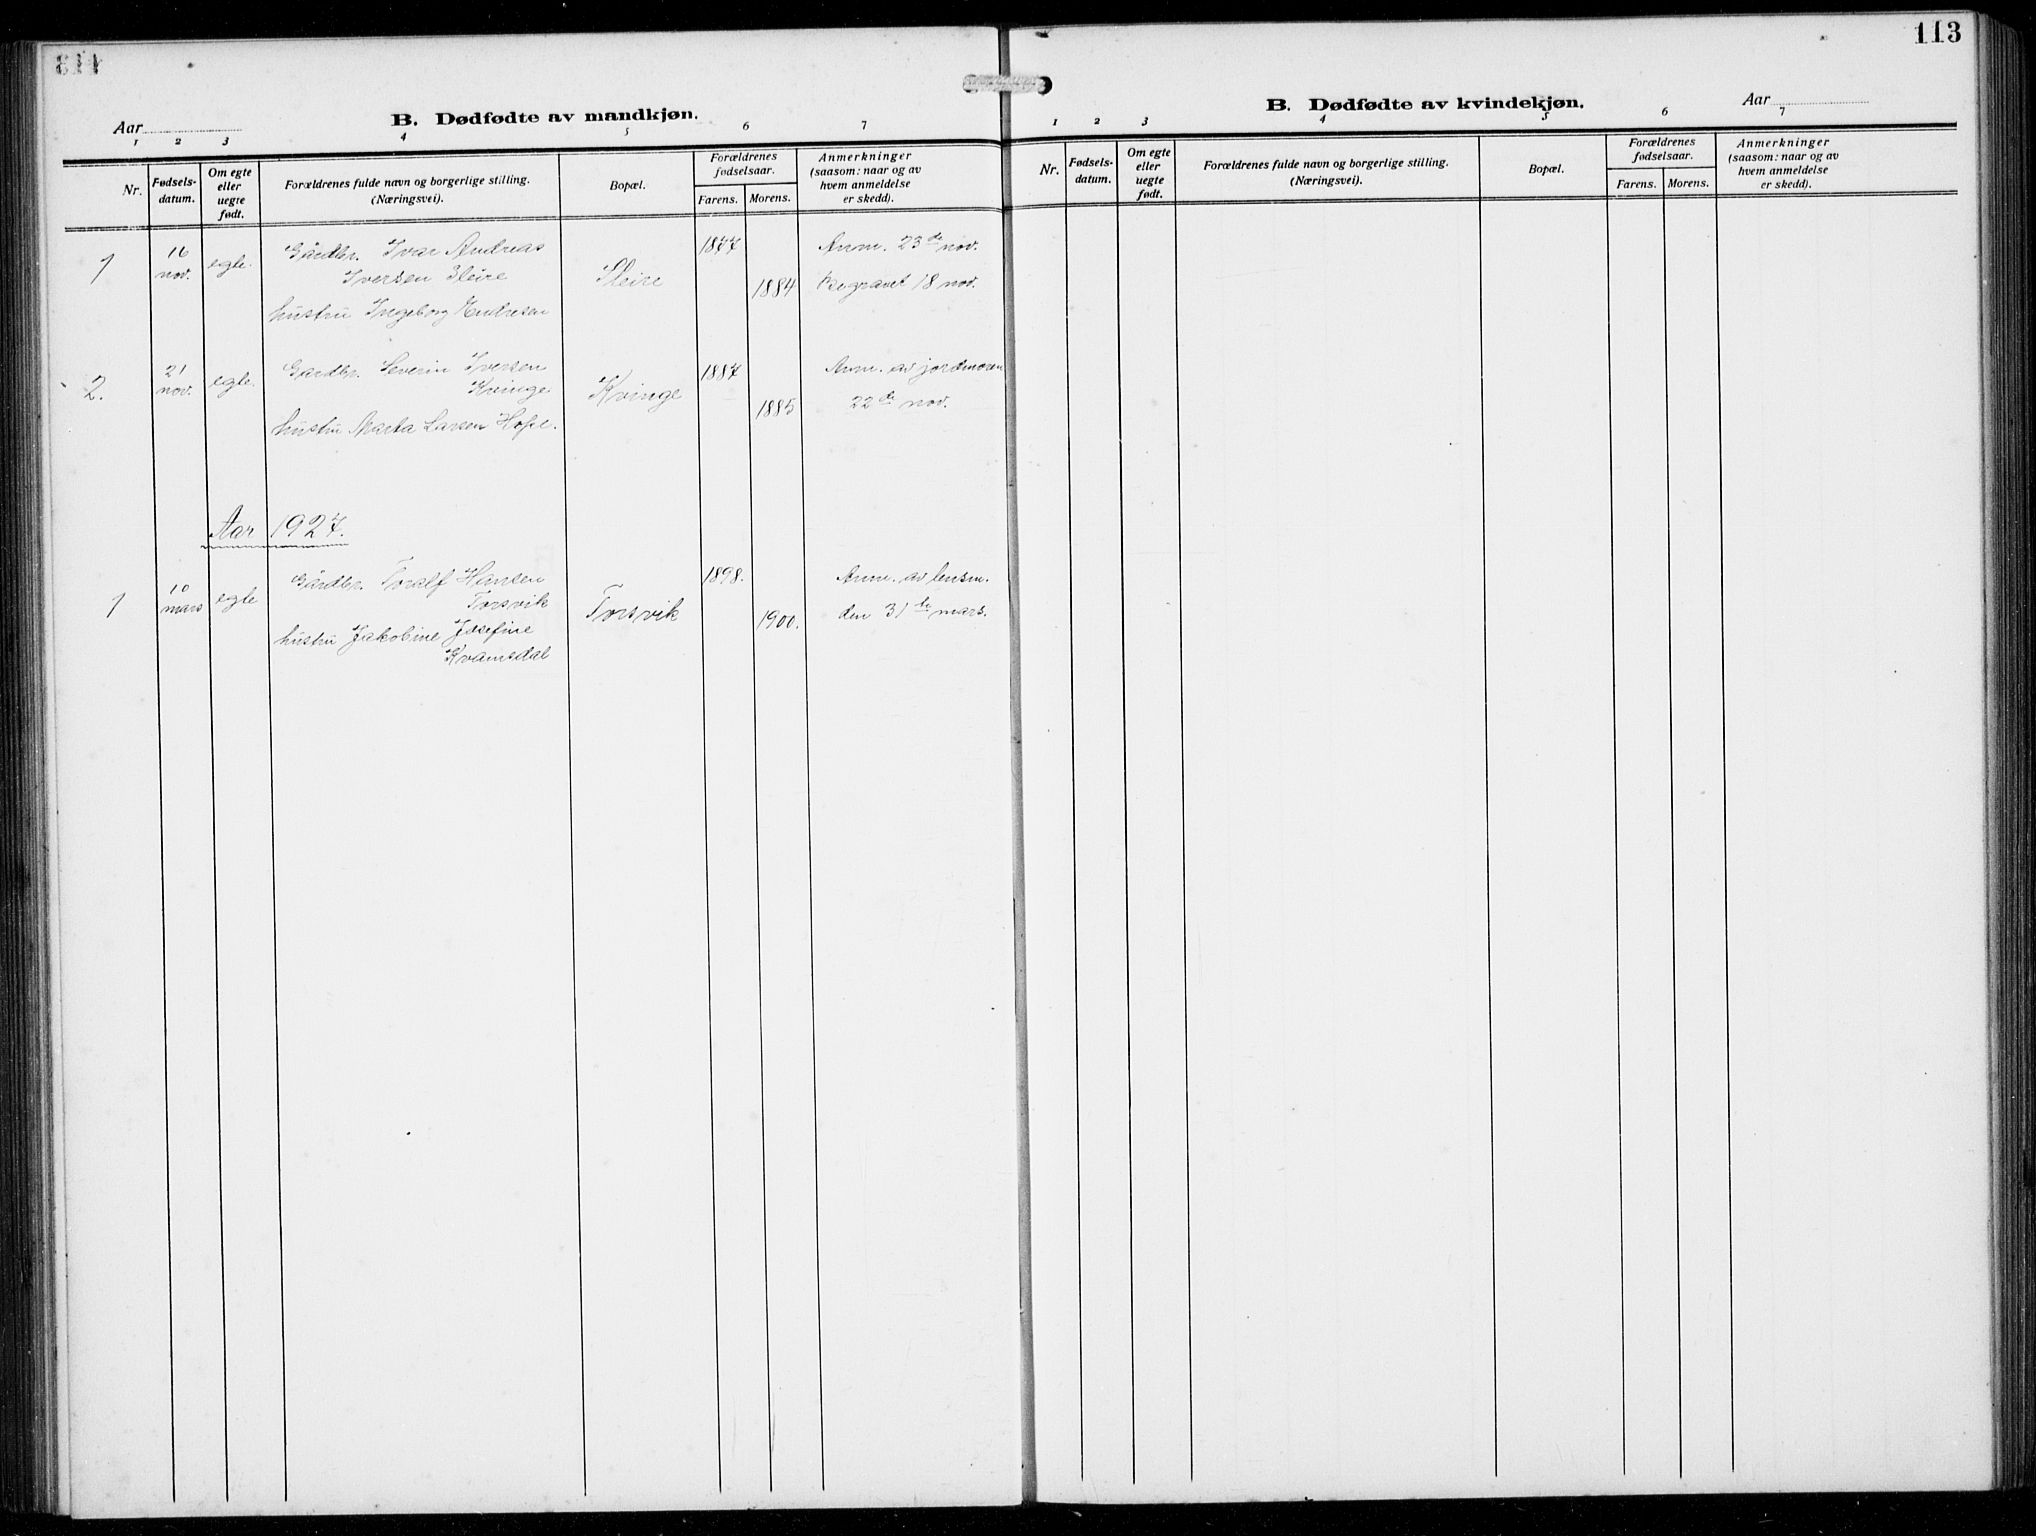 113
B. Dødfødte av mandkjøn.
Aar
1 2 3 4 5 6 7
Nr.
Fødsels-
datum.
Om egte
eller
uegte
født.
Forældrenes fulde navn og borgerlige stilling.
(Næringsvei).
Bopæl.
Forældrenes
fødselsaar.
Farens. Morens.
Anmerkninger
(saasom: naar og av
hvem anmeldelse
er skedd).
1
16
nov.
egte.
Gårdbr. Ivar Andreas
Iversen Sleire
hustru Ingeborg Endresen
Sleire
1877
1884
Anm. 23de nov.
Begravet 18 nov.
2.
21
nov.
egte.
Gårdbr. Severin Iversen
Kvinge
hustru Marta Larsen Hope.
Kvinge
1887
1885
Anm. av jordmoren
22de nov.
Aar 1927.
1
10
mars
egte
Gårdbr. Toralf Hansen
Torsvik
hustru Jakobine Josefine
Kvamsdal
Torsvik
1898.
1900.
Anm. av lensm.
den 31te mars.
113
B. Dødfødte av kvindekjøn.
Aar
1 2 3 4 5 6 7
Nr.
Fødsels-
datum.
Om egte
eller
uegte
født.
Forældrenes fulde navn og borgerlige stilling.
(Næringsvei).
Bopæl.
Forældrenes
fødselsaar.
Farens. Morens.
Anmerkninger
(saasom: naar og av
hvem anmeldelse
er skedd).